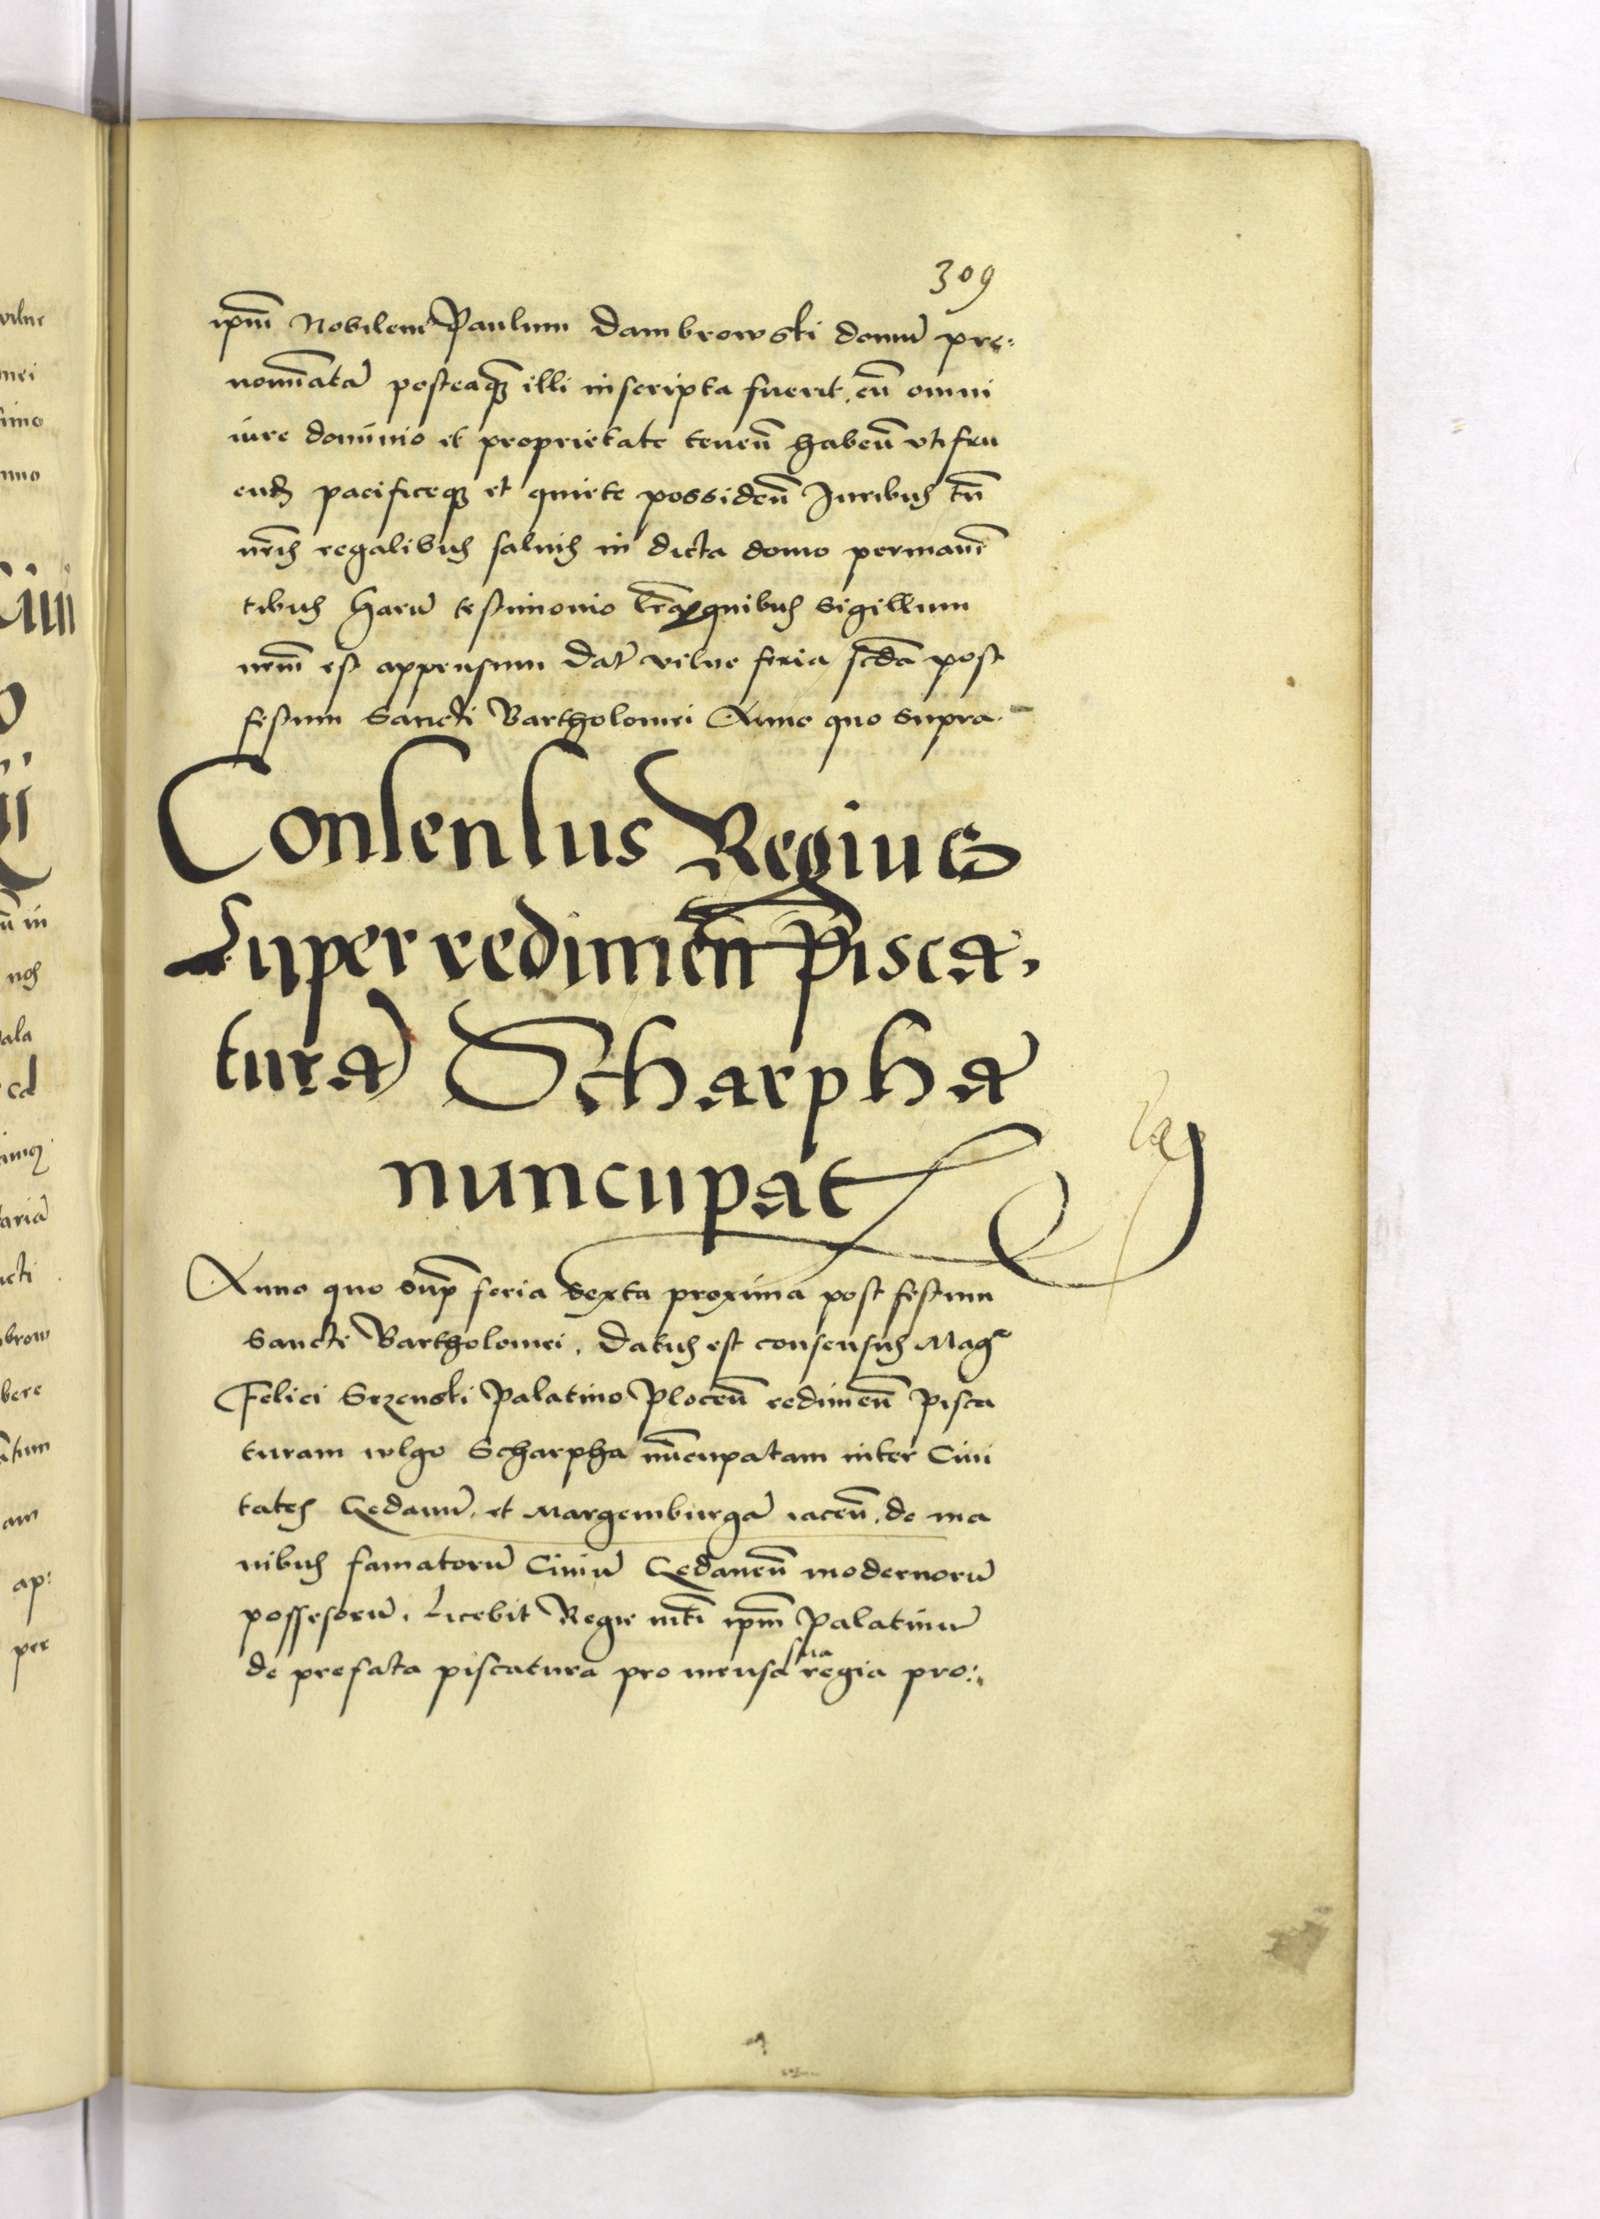 309
ipm̄ Nobilem Paulum Dambrowski domū pre:
nomīatā posteaqȝ illi inscripta fuerit, cū omni
iure dominio et proprietate teneñ habeñ utifru
end̄ pacificeqȝ et quiete possideñ Juribus tñ
nr̄is regalibus saluis in dicta domo permanē
tibus Harū testimonio lr̄aꝝ quibus sigillum
nr̄m est appensum Dat̄ vilne feria scd̄a post
festum Sancti Bartholomei Anno quo supra.
Consensus Regius
Super redimeñ Pisca,
turā Scharpha
nuncupat
Anno quo sup̄ feria sexta proxima post festum
Sancti Bartholomei, Datus est consensus Mag͡co
Felici Srzenski Palatino Ploceñ redimeñ Pisca
turam wlgo Scharpha nūcupatam inter Ciui
tates Gedanū, et Margemburgā iaceñ, de ma
nibus famatorū Ciuiū Gedaneñ modernorū
possesorū, Licebit Regie mti ipm̄ Palatinū
de prefata piscatura pro mensa sua regia pro:,